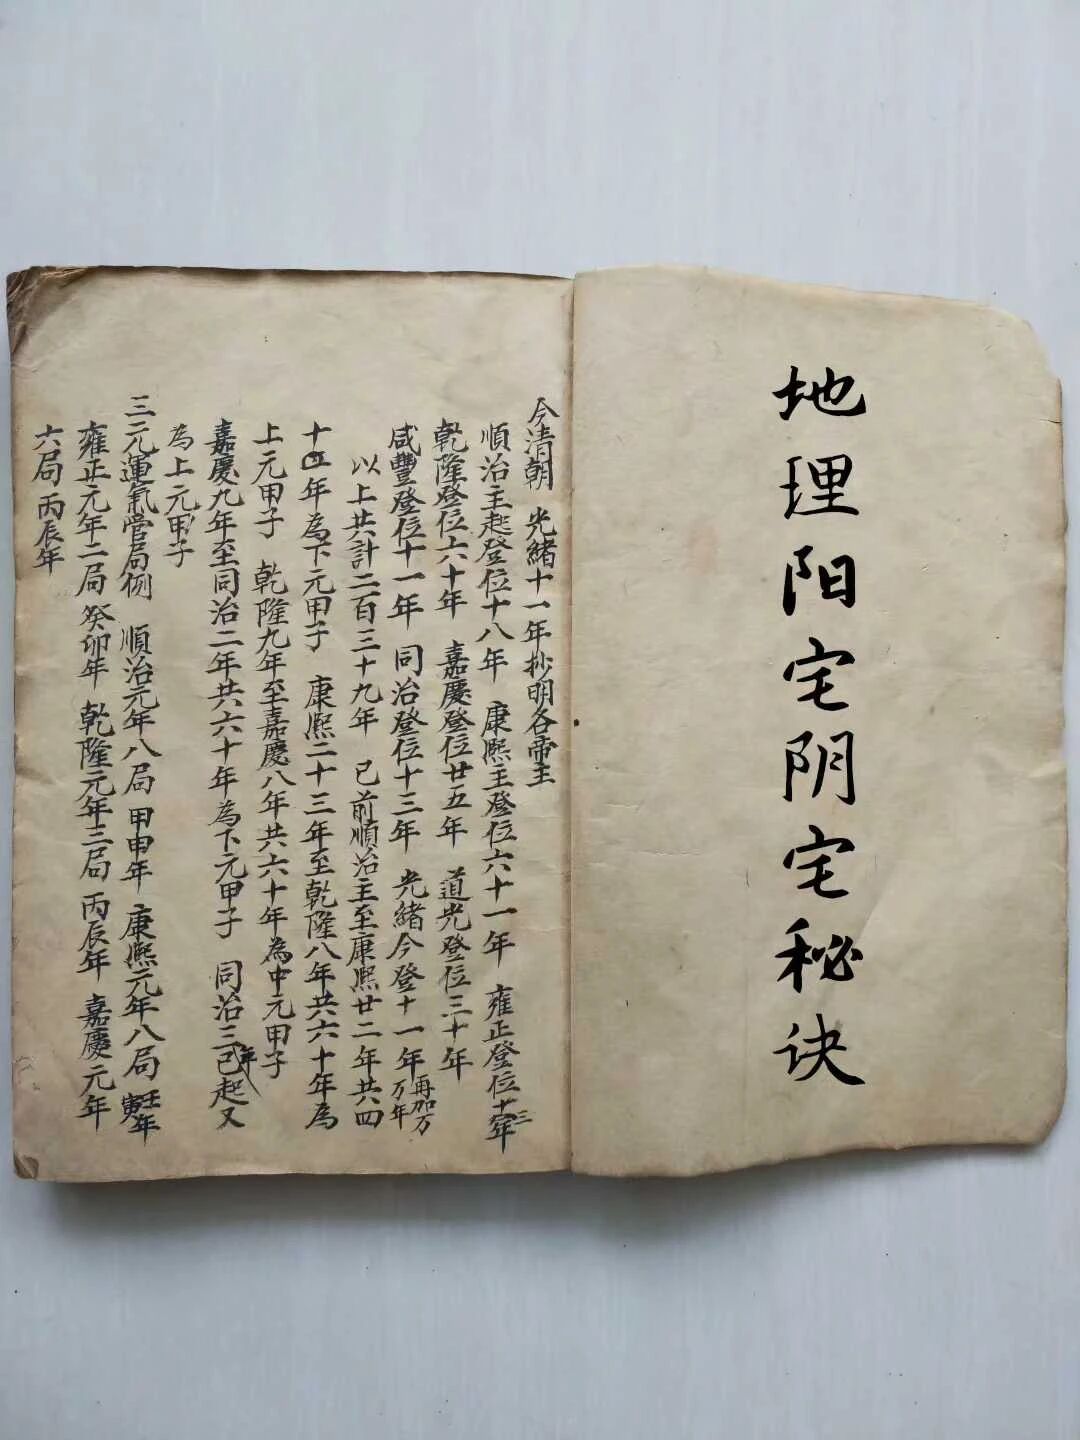 地理阳宅阴宅秘诀
今清朝 光緒十一年抄明各帝主
順治主起登位十八年 康熙主登位六十一年 雍正登位十三年
乾隆登位六十年 嘉慶登位廿五年 道光登位三十年
咸豐登位十一年 同治登位十三年 光緒今登十一年 再加万万年
以上共計二百三十九年 已前順治主至康熙廿二年共四
十四年為下元甲子 康熙二十三年至乾隆八年共六十年為
上元甲子 乾隆九年至嘉慶八年共六十年為中元甲子
嘉慶九年至同治二年共六十年為下元甲子 同治三年已起又
為上元甲子
三元運氣管局例 順治元年八局 甲申年 康熙元年八局 壬寅年
雍正元年二局 癸卯年 乾隆元年三局 丙辰年 嘉慶元年
六局 丙辰年